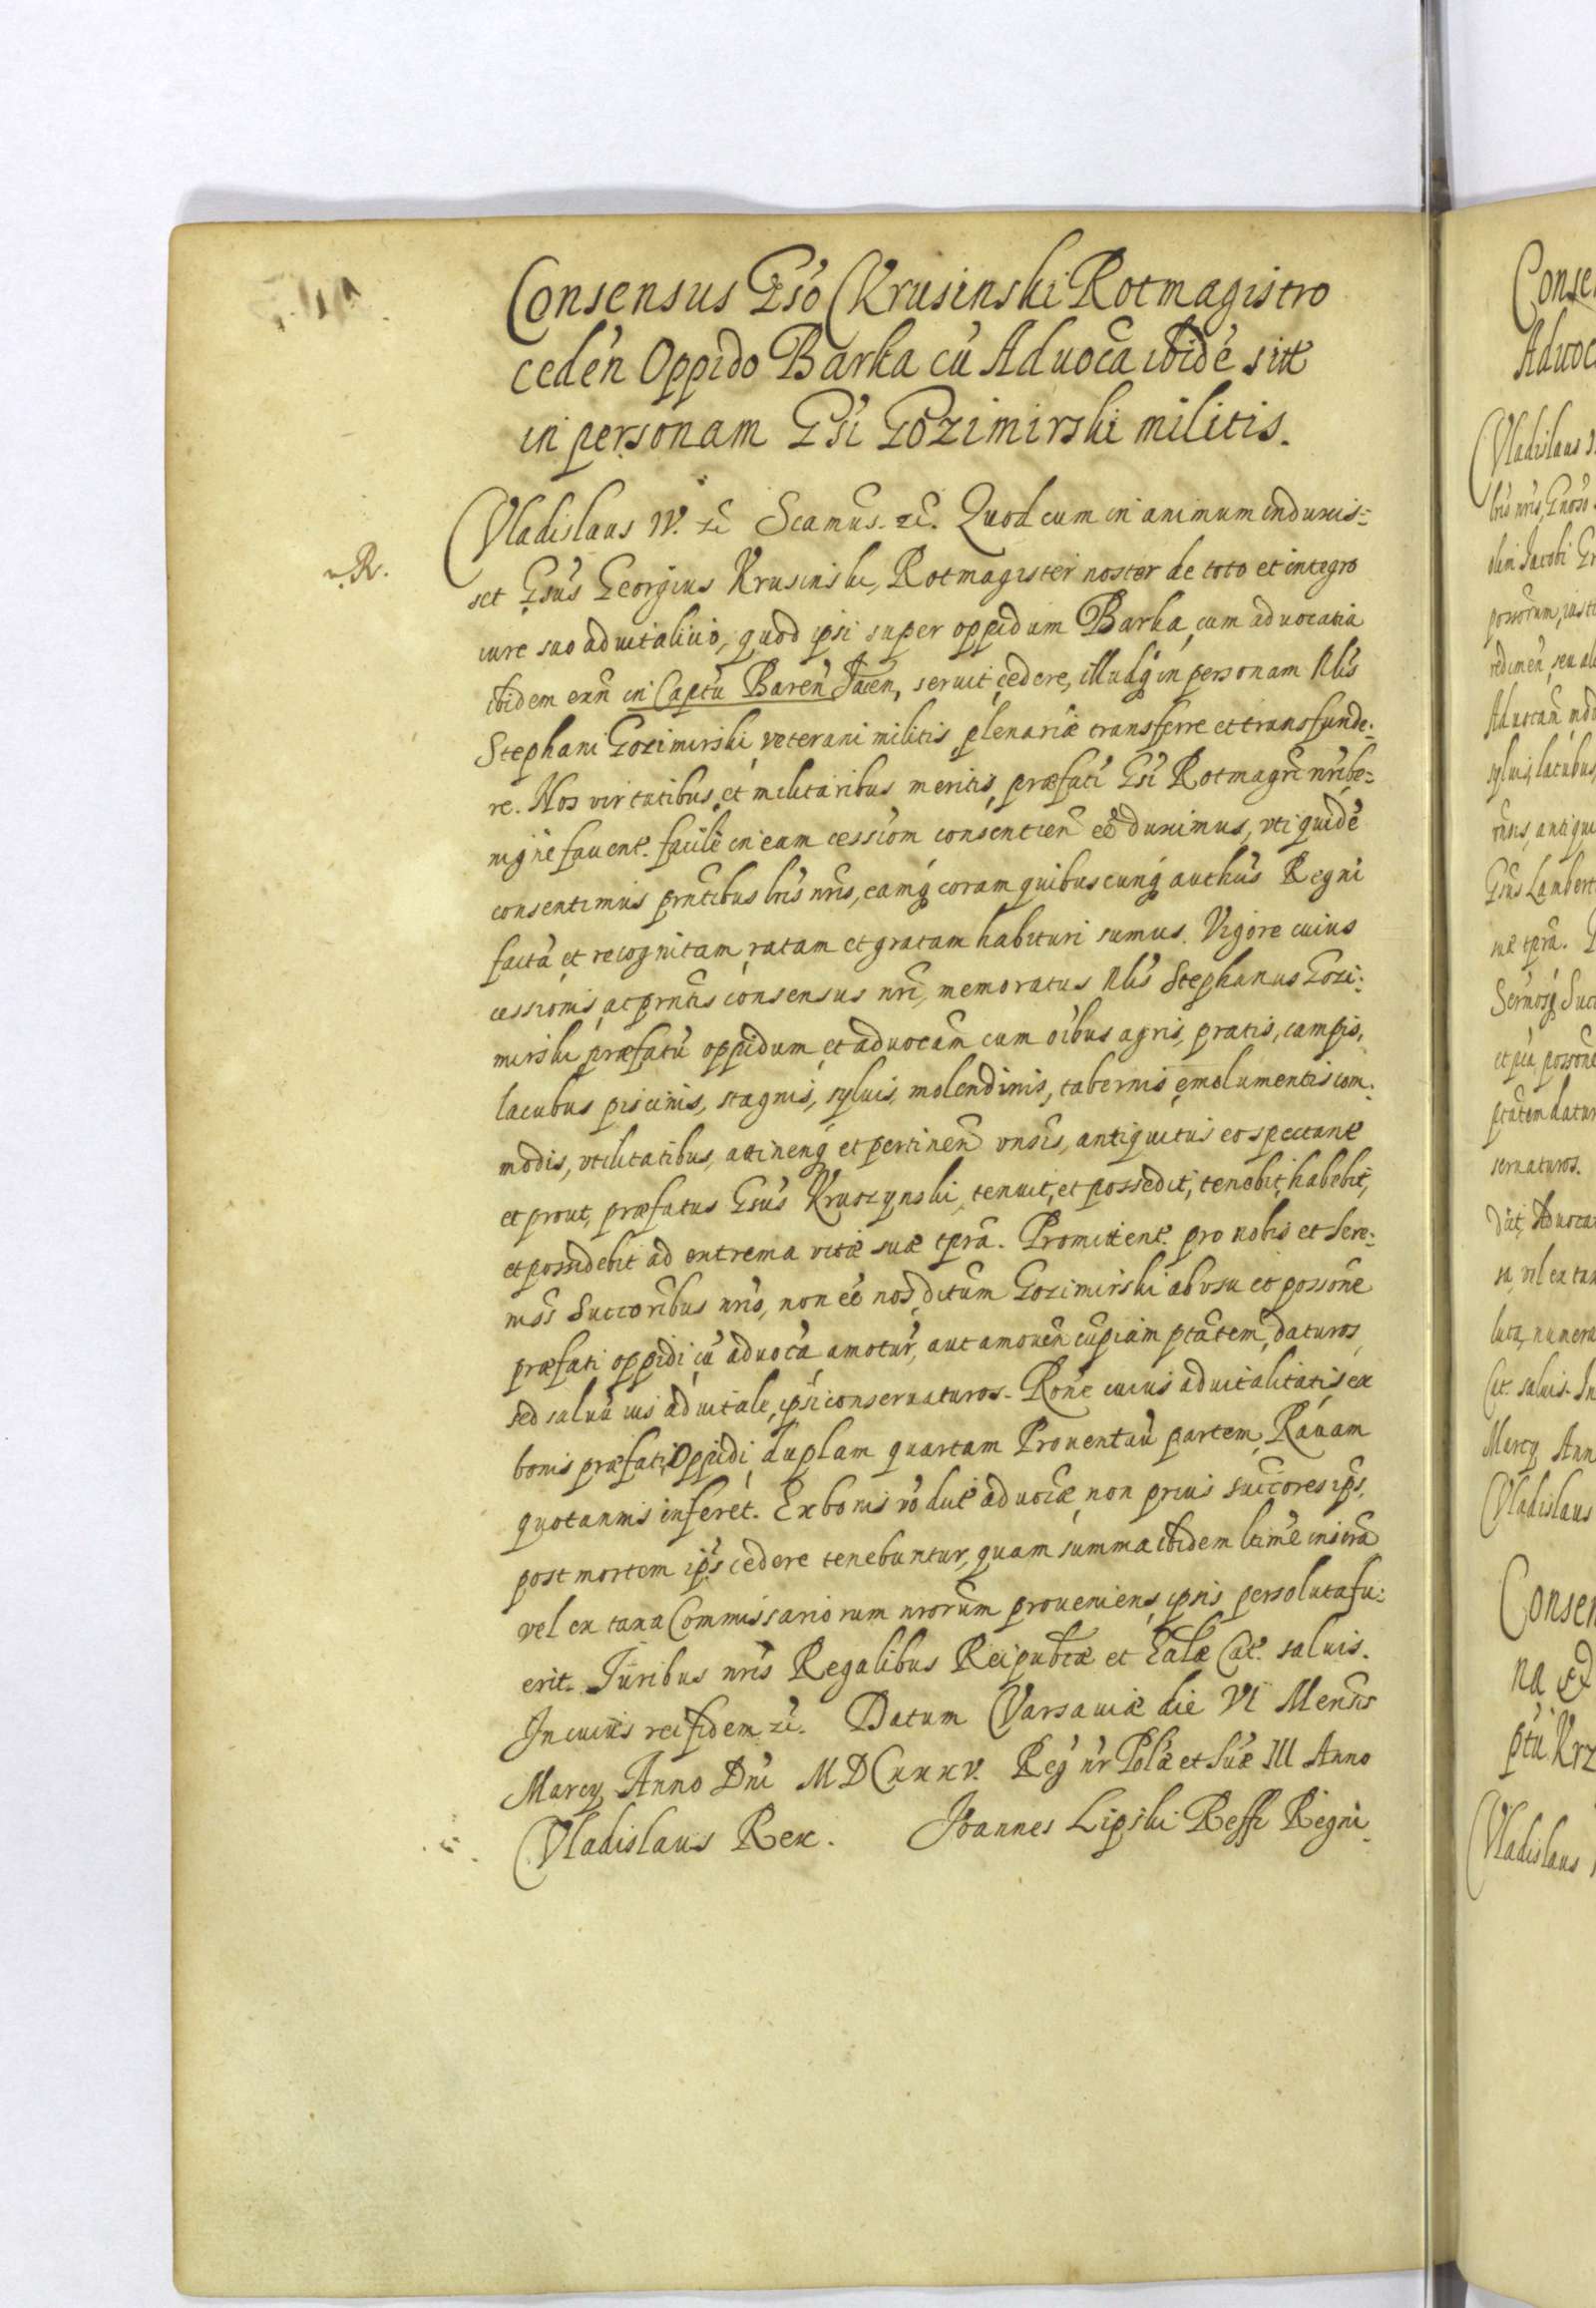 Consensus Gso Krusinski Rotmagistro
ceden Oppido Barka cu Aduoca ibide sitt
in personam Gsi Gozimirski militis.
Vladislaus IV. zc Scamus. zc. Quod cum in animum induxis=
set Gsus Georgius Krusinski, Rotmagister noster de toto et integro
iure suo aduitalitio, quod ipsi super oppidum Barka, cum aduocatia
ibidem exn in Captu Baren Jacen, seruit cedere, illudq in personam Nlis
Stephani Gozimirski, veterani militis plenarie transferre et transfunde=
re. Nos virtutibus et militaribus meritis præfati Gsi Rotmagri nri be=
nigne fauent. facile in eam cessiom consentien ee duximus, vti quide
consentimus pntibus lris nris, eamq coram quibuscunq authus Regni
facta et recognitam, ratam et gratam habituri sumus. Vigore cuius
cessionis, ac pntis consensus nri, memoratus Nlis Stephanus Gozi=
mirski præfatu oppidum et aduocam cum oibus agris, pratis, campis,
lacubus piscinis, stagnis, syluis, molendinis, tabernis, emolumentis com=
modis, vtilitatibus, attinenq et pertinen vnsis, antiquitus eo spectant
et prout præfatus Gsus Kruszynski tenuit, et possedit, tenebit, habebit,
et possidebit ad extrema vitæ suæ tpra. Promittent. pro nobis et Sere=
niss Succoribus nris, non ee nos, ditum Gozimirski ab vsu et possone
præfati oppidi cu aduoca amotur, aut amouen cupiam ptatem daturos,
sed saluu ius aduitale, ipsi conseruaturos. Rone cuius aduitalitatis ex
bonis præfati Oppidi duplam quartam Prouentuu partem, Rauam
quotannis inferet. Ex bonis vo dut aduocæ non prius succores ips,
post mortem ips cedere tenebuntur, quam summa ibidem ltime inscra
vel ex taxa Commissariorum nrorum proueniens, ipsis persoluta fu=
erit. Juribus nris Regalibus Reipubcæ et Ealæ Cat. saluis.
In cuius rei fidem zc. Datum Varsauiæ die VI Mensis
Marcy Anno Dni MDCXXXV. Reg nr Polæ et Suæ III Anno
Vladislaus Rex. Joannes Lipski Reffr Regni
R.
Aduoc
Vladislaus
Gsus Lambert
sernaturos.
Marcy Ann
Vladislaus
Vladislaus